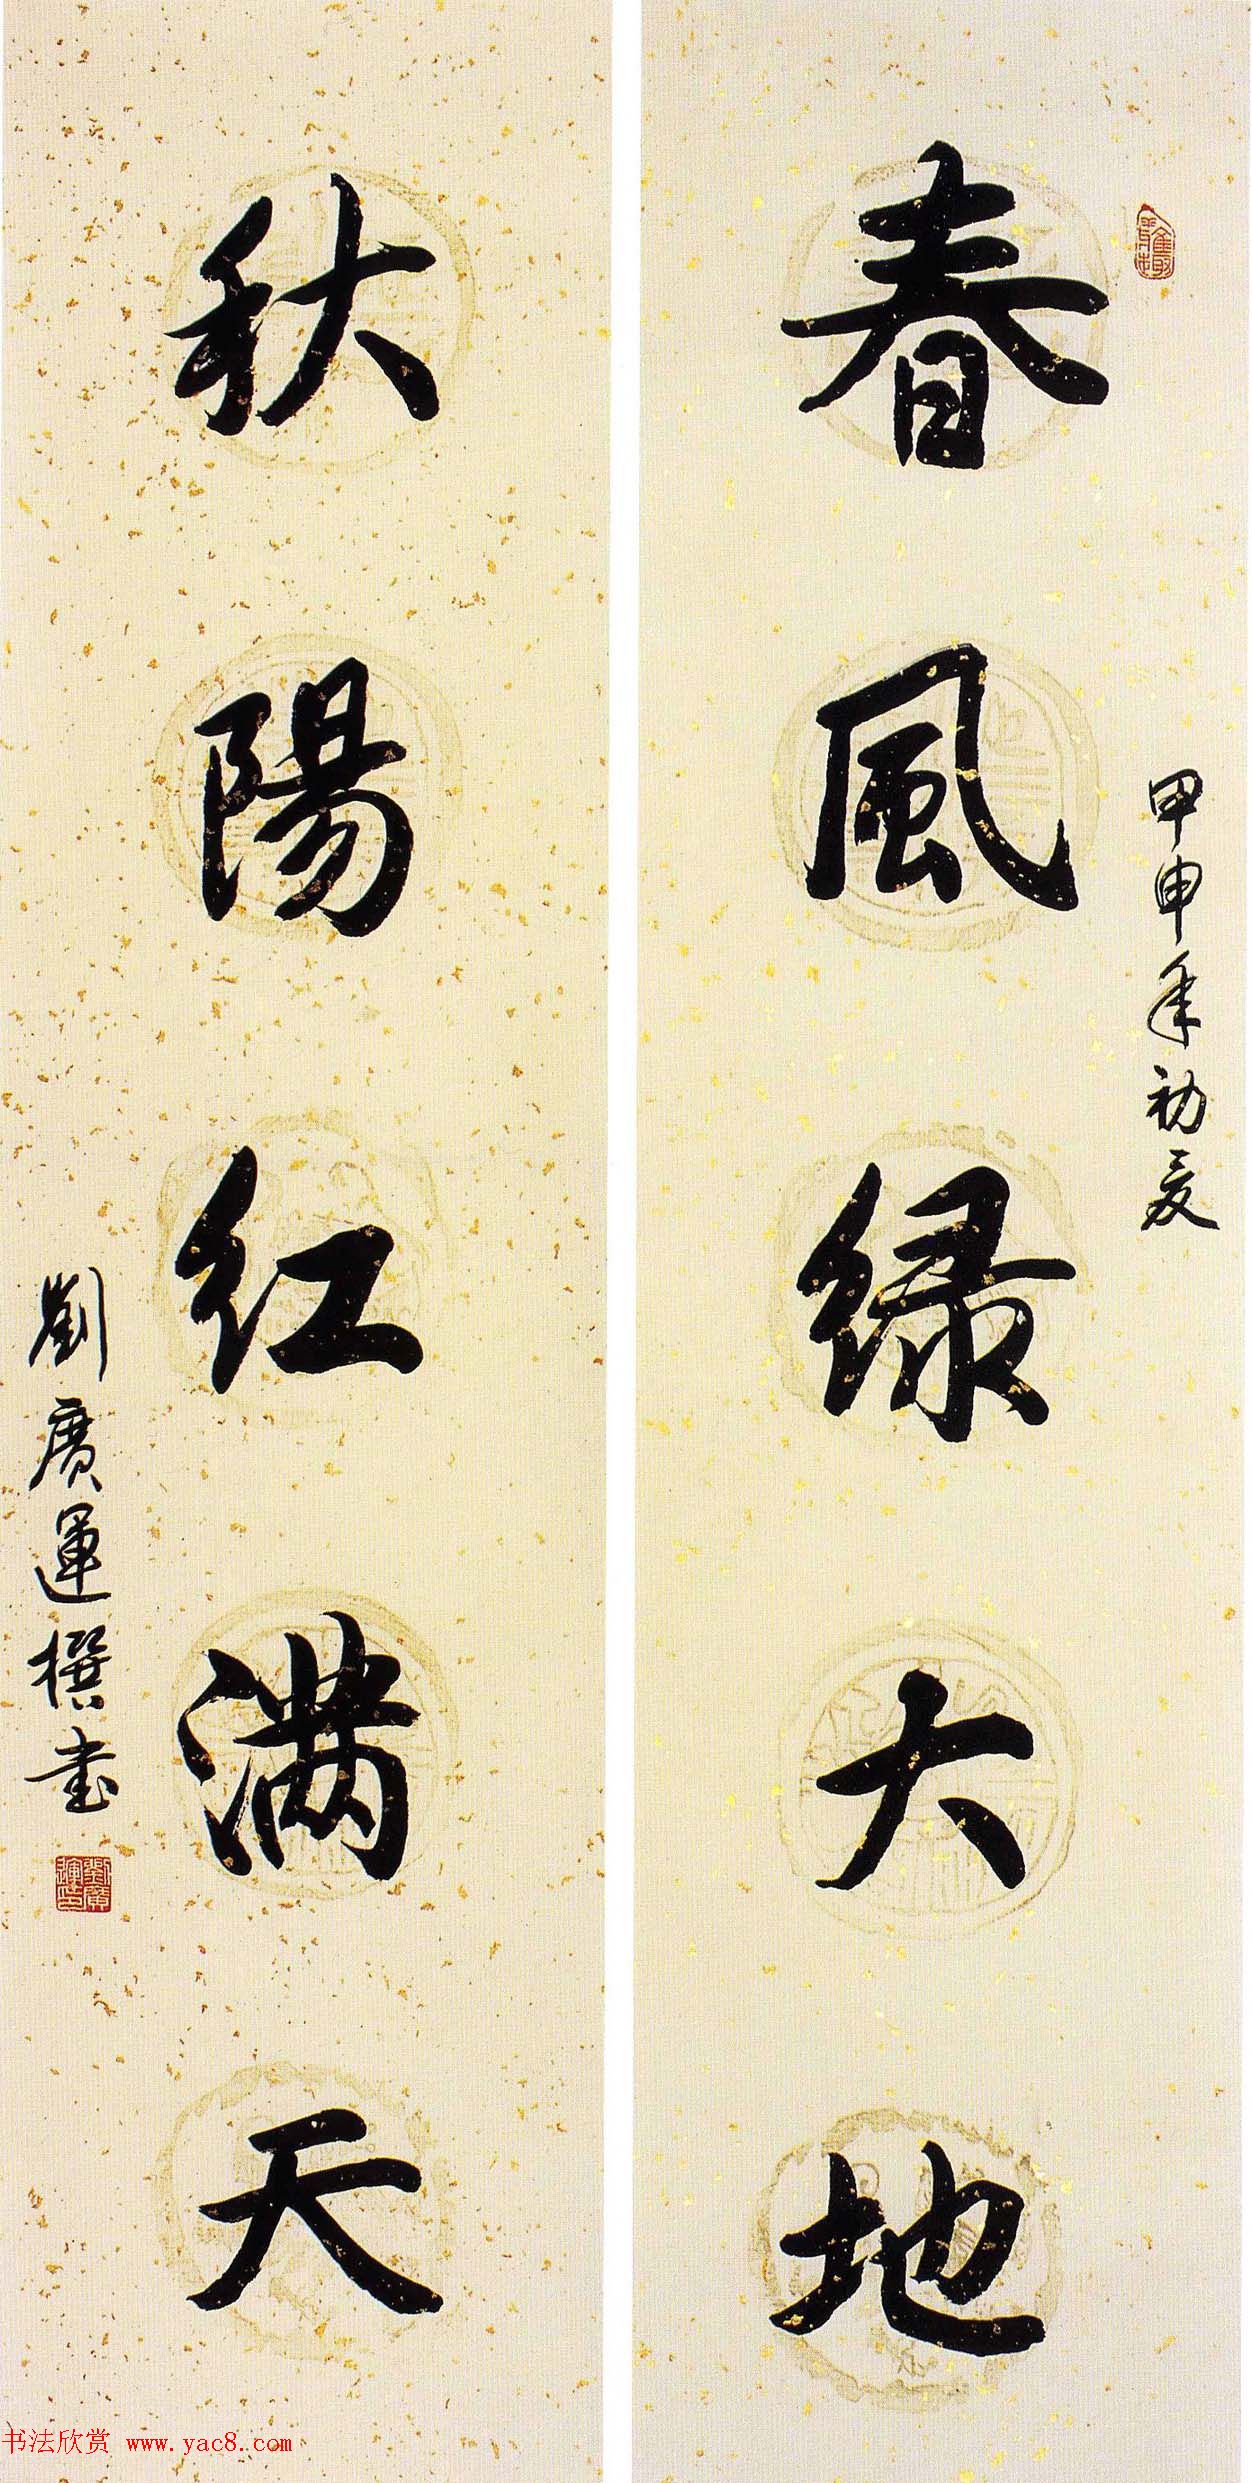 春風绿大地
甲申年初夏
秋陽红满天
劉廣運撰书
劉廣運印
书法欣赏 www.yac8.com